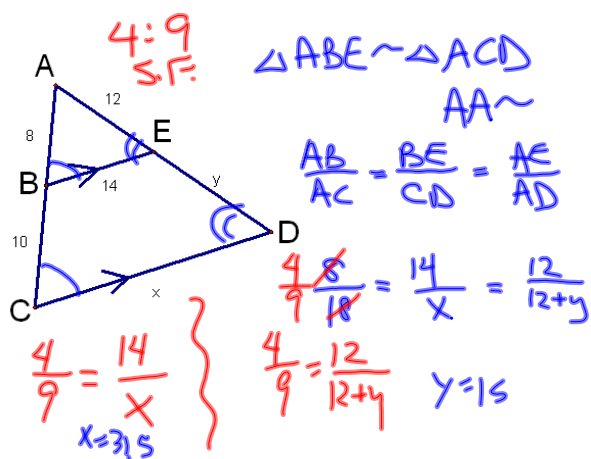 4:9
S.F.
△ABE ~ △ACD
AA~
A
12
8
E
B
14
y
10
D
C
x
AB/AC = BE/CD = AE/AD
4/9 8/18 = 14/x = 12/12+y
4/9 = 14/x
x=31.5
4/9 = 12/12+y
y=15